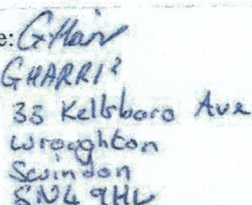 e:
GHARRIS
33 Kellsboro Ave
Wroughton
Swindon
SN4 9HL